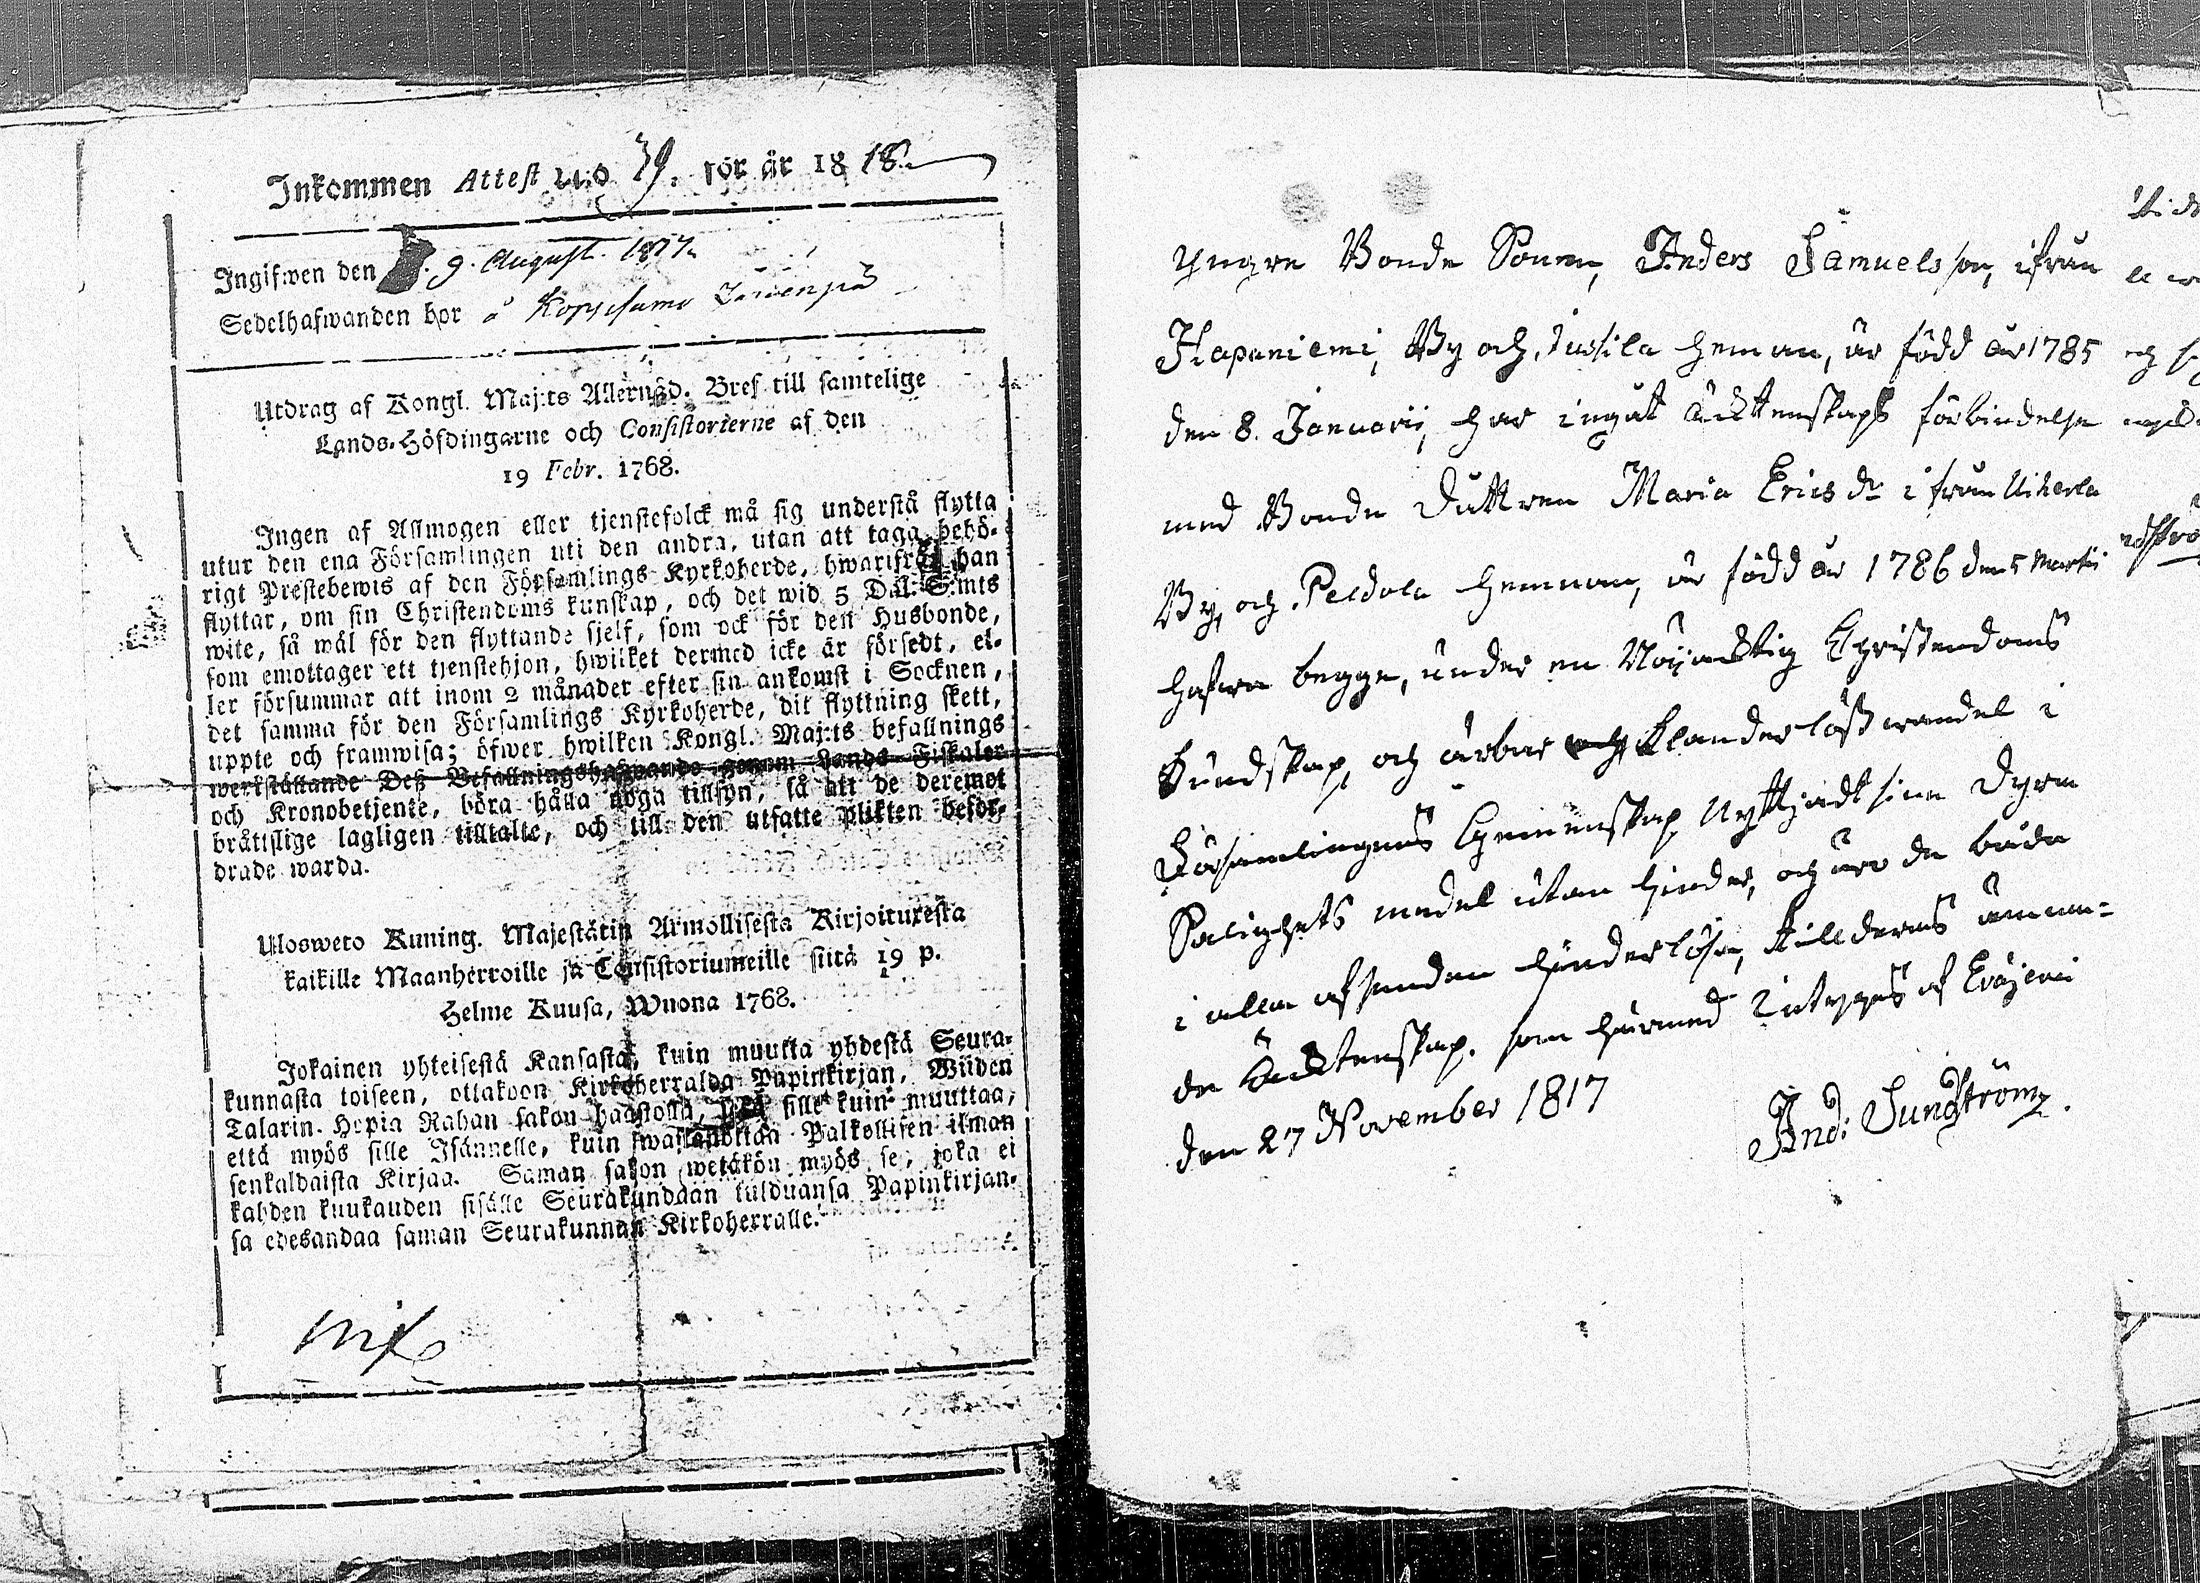 Inkommen Attest N:o 39. för år 1818.
Ingifwen den 9. August. 1817.
Sedelhafwanden bor å
Utdrag af Kongl. Maj:ts Allernåd. Bref till samtelige
Lands-Höfdingarne och Consistorierne af den
19 Febr. 1768.
Ingen af Allmogen eller tjenstefolck må sig understå flytta
utur den ena Församlingen uti den andra, utan att taga behö-
rigt Prestebewis af den Församlings Kyrkoherde, hwarifrån han
flyttar, om sin Christendoms kunskap, och det wid 5 Dal. S:mts
wite, så wäl för den flyttande sjelf, som ock för den Husbonde,
som emottager ett tjenstehjon, hwilket dermed icke är försedt, el-
ler försummar att inom 2 månader efter sin ankomst i Socknen,
det samma för den Församlings Kyrkoherde, dit flyttning skett,
uppte och framwisa; öfwer hwilken Kongl. Maj:ts befallnings
werkställande Deß Befallningshafwande genom Lands-Fiskaler
och Kronobetjente, böra hålla noga tillsyn, så att de deremot
bråttslige lagligen tilltalte, och till den utsatte plikten befor-
drade warda.
Ulosweto Kuning. Majestätin Armollisesta Kirjoituxesta
kaikille Maanherroille ja Consistoriumeille siitä 19 p.
Helme Kuusa, Wuona 1768.
Jokainen yhteisestä Kansasta, kuin muutta yhdestä Seura-
kunnasta toiseen, ottakoon Kirkoherralda Papinkirjan, Wiiden
Talarin Hopia Rahan sakon haastolla, sille kuin muuttaa,
että myös sille Isännelle, kuin wastanottaa Palkollisen ilman
senkaldaista Kirjaa. Saman sakon wetäkön myös se, joka ei
kahden kuukauden sisälle Seurakundaan tulduansa Papinkirjan-
sa edesandaa saman Seurakunnan Kirkoherralle.
yngre Bonde Sonen, Anders Samuelsson, ifrån
Hapaniemi, By och Jussila heman, är född år 1785
den 8. Januarii, har ingåt äcktenskaps förbindelse
med Bonde Duttren Maria Erics dr ifrån Uiherla
By, och Peldola hemman, är född år 1786 den 5 Martii
hafwa begge, under en Nöijacktig Christendoms
Kundskap, och ärbar och klanderlöst wandel i
Församlingens Gemenskap Nyttjadt sine dyra
Salighets medel utan hinder, och äro de båda
i alla afseenden hinderlöse, till deras ämna-
de Äcktenskap. som härmed intygas af Eräjerwi
den 27 November 1817
And: Sundström